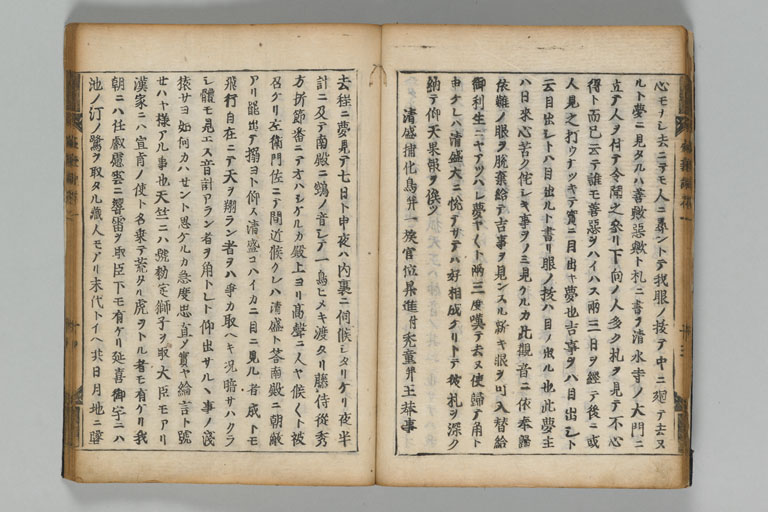 心モナシ去ニテモ人ニ尋ントテ我眼ノ抜テ中ニ廻テ去ヌ
ルト夢ニ見タルハ善歟惡歟ト札ニ書ヲ清水寺ノ大門ニ
立テ人ヲ付テ令聞之参リ下向ノ人多ク札ヲ見テ不心
得ト而已云テ誰モ善惡ヲハイハス兩三日ヲ經テ後ニ或
人見之打ウナツキテ實ニ目出ヤ夢也吉事ヲハ目出シト
云目出シトハ目出ルト書リ眼ノ抜ハ目ノ出ル也此夢主
ハ日來心苦ク侘シキ事ヲノミ見クルカ此觀音ニ依奉歸
依難ノ眼ヲ脱棄給テ吉事ヲ見ンスル新キ眼ヲ可入替給
御利生ニヤアツハレ夢ヤ〱ト兩三度嘆テ去ヌ使歸テ角ト
申ケレハ清盛大ニ悅テサテハ好相成ケリトテ彼札ヲ深ク
納テ仰天果報ヲ俟ツ
清盛捕化鳥幷一族官位昇進付禿童幷王莽事
去程ニ夢見テ七日ト申夜ハ内裏ニ伺候シタリケリ夜半
計ニ及テ南殿ニ鵼ノ音シテ一鳥ヒメキ渡タリ藤侍從秀
方折節番ニテオハシケルカ殿上ヨリ高聲ニ人ヤ候〱ト被
召ケリ左衞門佐ニテ間近候ケレハ清盛ト答南殿ニ朝敵
アリ罷出テ搦ヨト仰ス清盛コハイカニ目ニ見ル者成トモ
飛行自在ニテ天ヲ翔ラン者ヲハ爭カ取ヘキ況暗サハクラ
シ體モ見エス音計アラン者ヲ角トレト仰出サルヽ事ノ淺
猿サヨ如何カハセント思ケルカ急度思直メ實ヤ綸言ト號
セハヤ樣アル事也天竺ニハ號勅定獅子ヲ取大臣モアリ
漢家ニハ宣旨ノ使ト名乘テ荒タル虎ヲトル者モ有ケリ我
朝ニハ仕叡慮雲ニ響雷ヲ取臣下モ有ケリ延喜御宇ニハ
池ノ汀ノ鷺ヲ取タル藏人モアリ末代トイヘ共日月地ニ墜